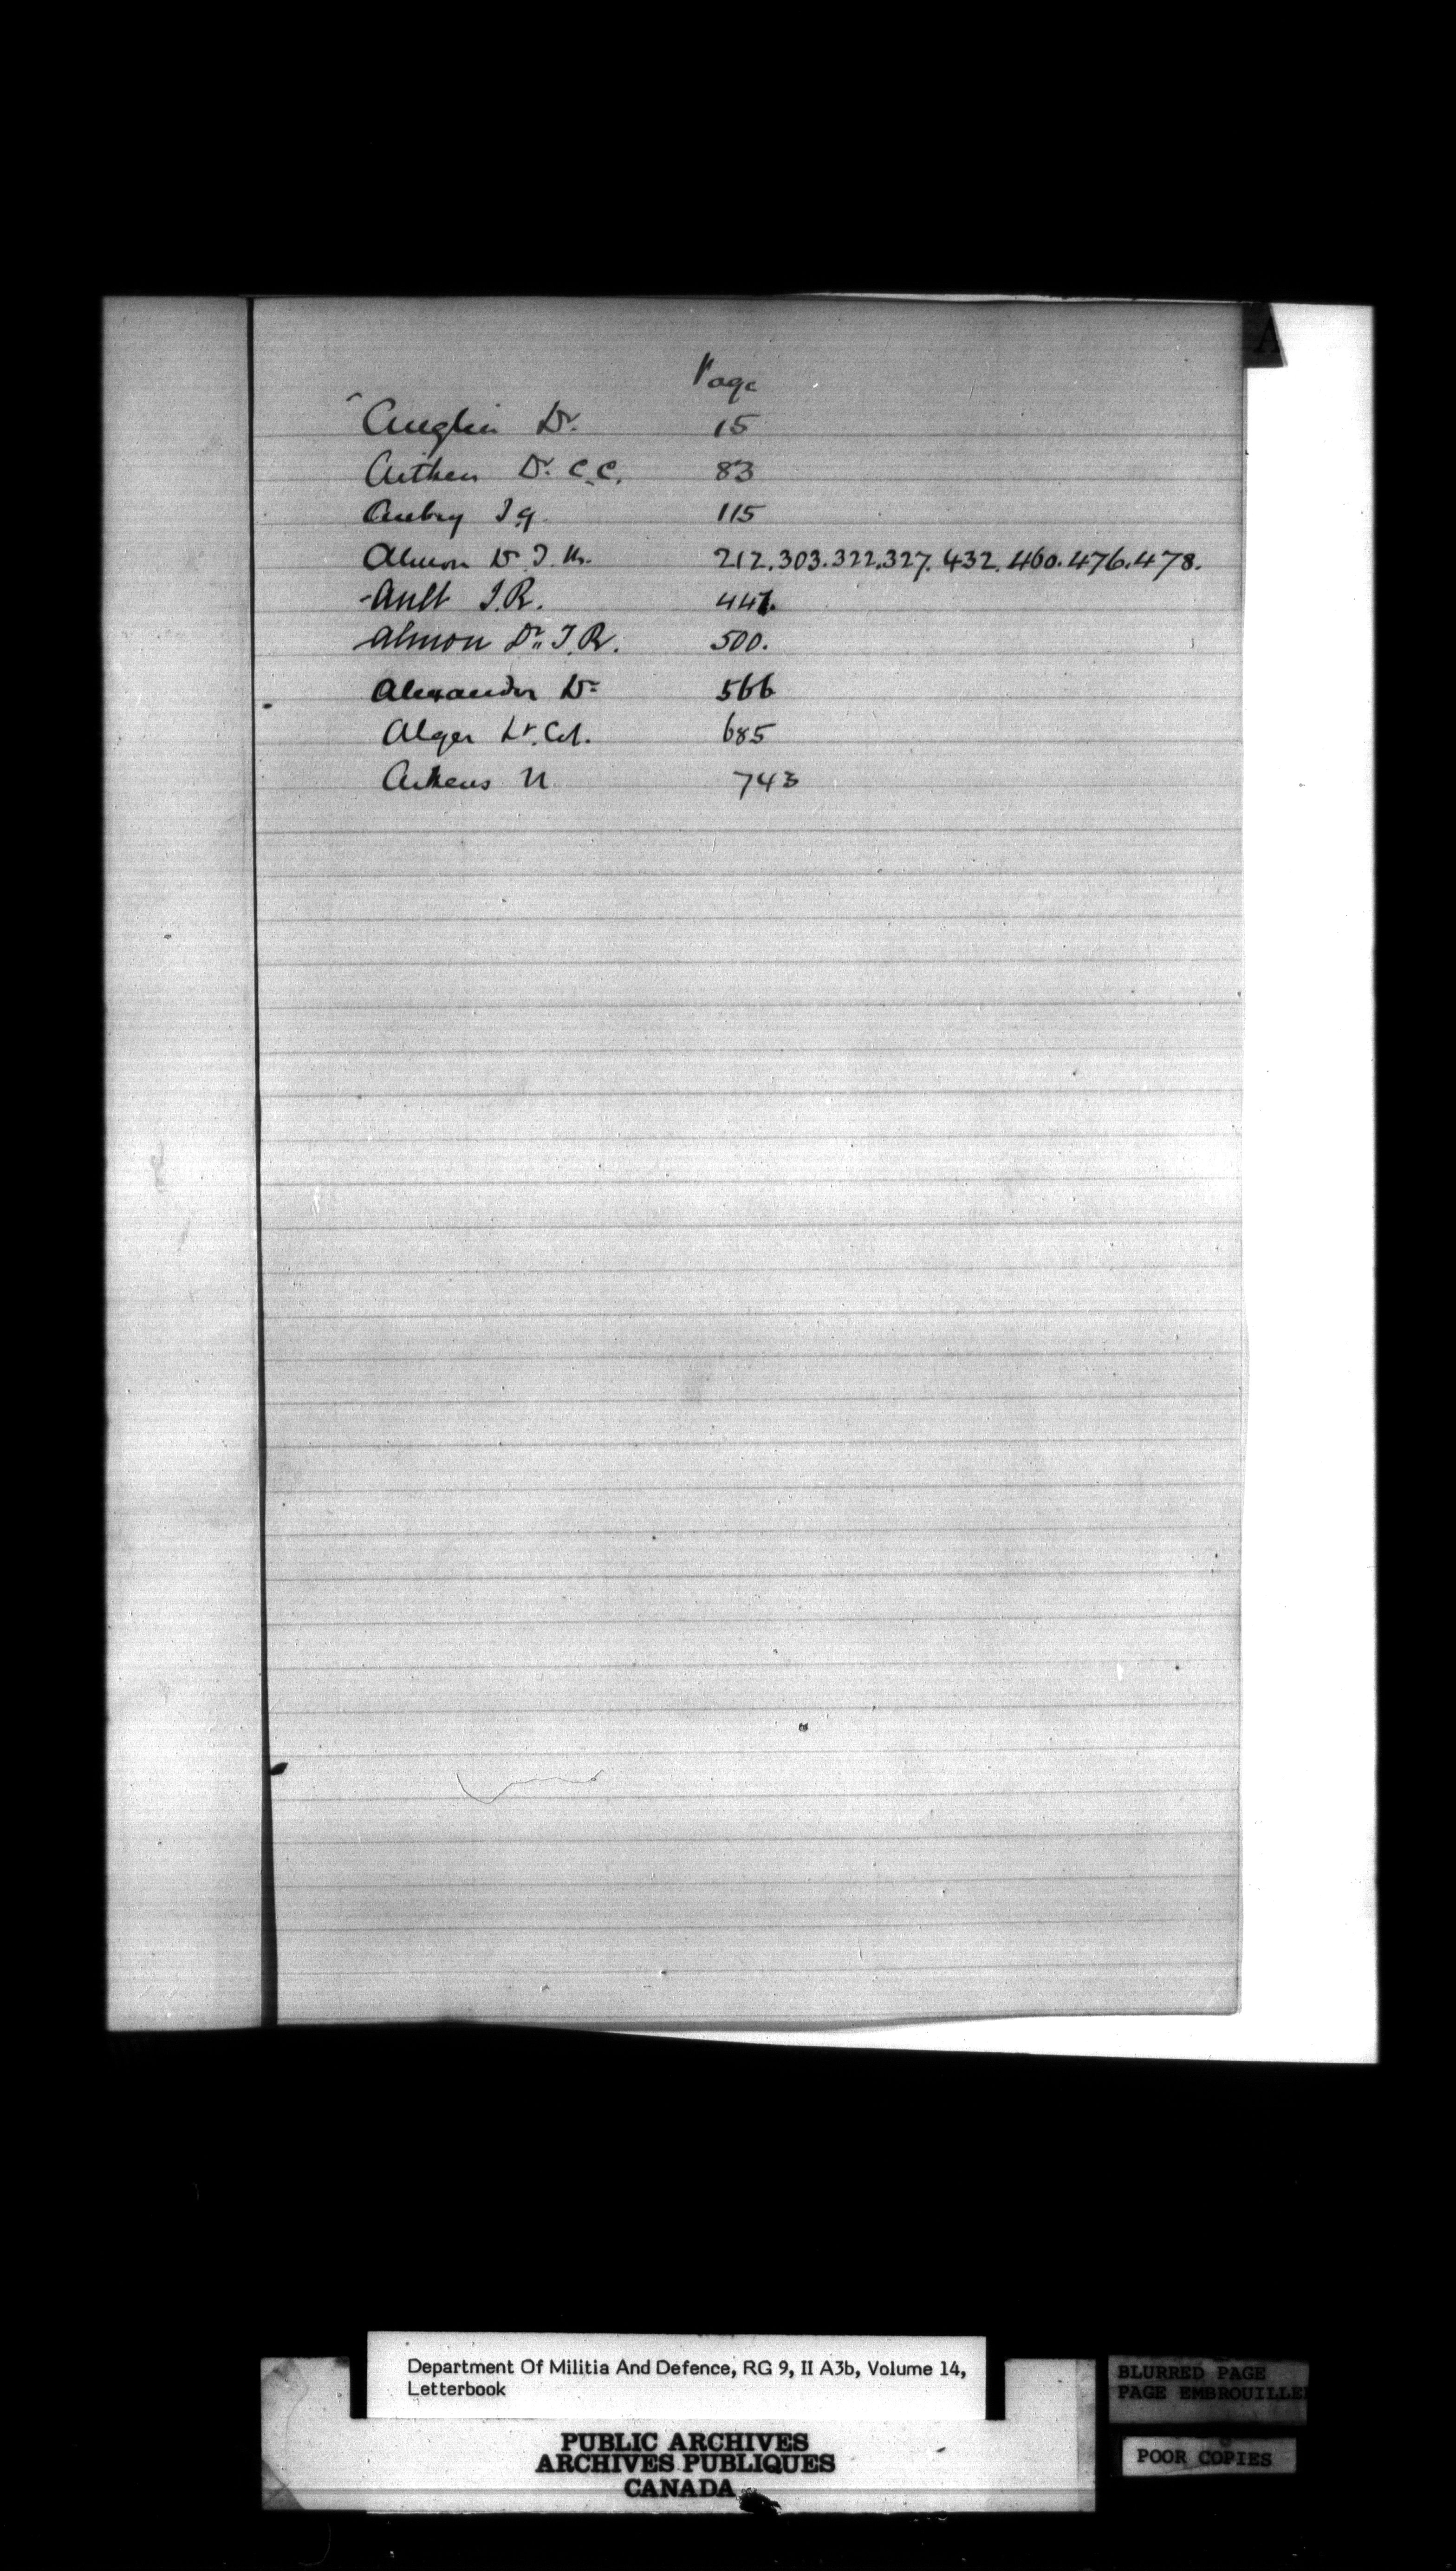 A
Page
Anglin Dr. 15
Aitken Dr. C.C. 83
Aubry J.G. 115
Almon Dr T. M. 212.303.322.327.432.460.476.478.
Ault J.R. 441.
Almon Dr. T.R. 500.
Alexander Dr 566
Alger Lt. Col. 685
Aikens N 743
Department Of Militia And Defence, RG 9, II A3b, Volume 14,
Letterbook
PUBLIC ARCHIVES
ARCHIVES PUBLIQUES
CANADA
BLURRED PAGE
PAGE EMBROUILLE
POOR COPIES